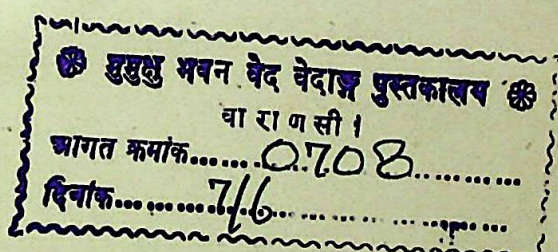 मुमुक्षु भवन वेद वेदाङ्ग पुस्तकालय
वा रा ण सी ।
आगत क्रमांक.......0708...........
दिनांक...........7/6....................